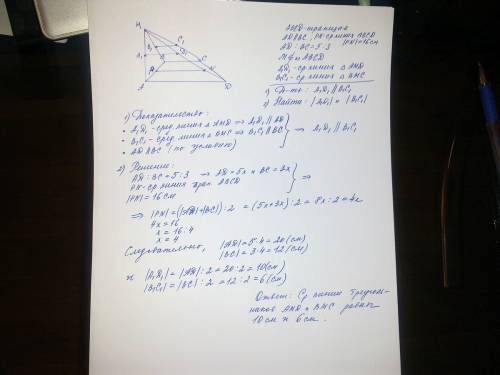 ABCD - трапеция
AD∥BC, PK - ср линия ABCD
AD : BC = 5:3 |PK| = 16 см
M ∉ пл ABCD
A₁D₁ - ср линия △ AMD
B₁C₁ - ср линия △ BMC
1) Д-ть: A₁D₁ ∥ B₁C₁
2) Найти: |A₁D₁| и |B₁C₁|
M
B₁
C₁
D₁
A₁
B
C
A
D
1) Доказательство:
• A₁D₁ - сред. линия △ AMD ⇒ A₁D₁ ∥ AD
• B₁C₁ - сред. линия △ BMC ⇒ B₁C₁ ∥ BC
• AD ∥ BC (по условию)
⇒ A₁D₁ ∥ B₁C₁
2) Решение:
AD : BC = 5:3 ⇒ AD = 5x и BC = 3x
PK - ср линия трап. ABCD
|PK| = 16 см
⇒
⇒ |PK| = (|AD| + |BC|) : 2 = (5x + 3x) : 2 = 8x : 2 = 4x
4x = 16
x = 16 : 4
x = 4
Следовательно, |AD| = 5·4 = 20 (см)
|BC| = 3·4 = 12 (см)
и |A₁D₁| = |AD| : 2 = 20 : 2 = 10 (см)
|B₁C₁| = |BC| : 2 = 12 : 2 = 6 (см)
Ответ: Ср линии треуголь-
ников AMD и BMC равны
10 см и 6 см.